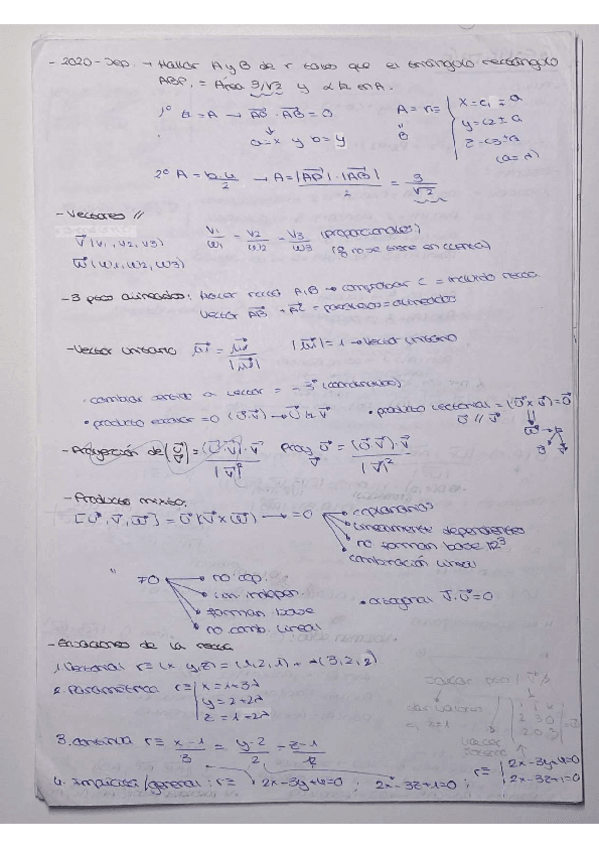 - 2020 - Sep. → Hallar A y B de r tales que el triángulo rectángulo
ABP, = Área 3/√2 y α 12 en A.
1º α = A → AP · AB = 0
a = x y b = y
A = r ≡ { x = c₁ ± a
y = c2 ± a
z = c3 ± a
B
(a = λ)
2º A = b·a / 2 → A = |AP| · |AB| / 2 = 3 / √2
- Vectores //
V (v1, v2, v3)
W (w1, w2, w3)
v1/w1 = v2/w2 = v3/w3 (proporcionales)
- 3 ptos alineados: Hacer recta A, B → comprobar C = incluido recta.
Vector AB + AC = paralelos = alineados
- Vector unitario
|u| = 1 → vector unitario
· cambiar sentido a vector = - (coordenadas)
• producto escalar = 0 (U·V) → U ⊥ V
• producto vectorial = (U x V) = 0
U // V
- Proyección de (U/V) = (U·V)·V / |V|²
Proy U = (U·V)·V / |V|²
V
- Producto mixto:
[U, V, W] = U (V x W) → = 0
coplanarios
linealmente dependientes
no forman base R³
combinación lineal
≠ 0
no cop.
son indepen.
forman base
no comb. lineal
• ortogonal U·V = 0
- Ecuaciones de la recta
1. Vectorial r ≡ (x y, z) = (1, 2, 1) + λ(3, 2, 2)
2. Paramétrica r ≡ { x = 1 + 3λ
y = 2 + 2λ
z = 1 + 2λ
3. continua r ≡ x - 1 / 3 = y - 2 / 2 = z - 1 / 2
4. Implícita / general: r ≡ 2x - 3y + 4 = 0 ; 2x - 3z + 1 = 0 ;
r ≡ { 2x - 3y + 4 = 0
2x - 3z + 1 = 0